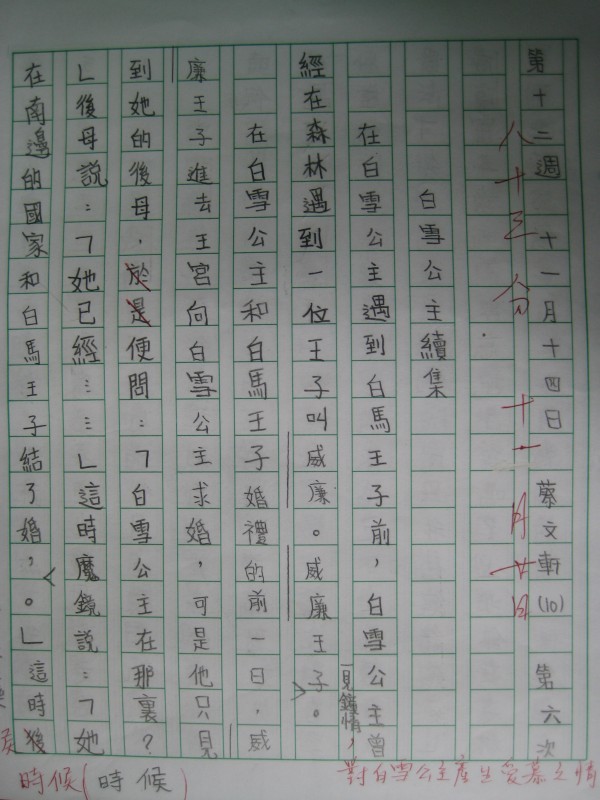 第十二週 十一月十四日 蔡文軒(10) 第六次
八十三分 十一月廿日
白雪公主續集
在白雪公主遇到白馬王子前,白雪公主曾
經在森林遇到一位王子叫威廉。威廉王子。
一見鍾情,對白雪公主產生愛慕之情
在白雪公主和白馬王子婚禮的前一日,威
廉王子進去王宮向白雪公主求婚,可是他只見
到她的後母,於是便問:「白雪公主在那裏?
」後母說:「她已經……」這時魔鏡說:「她
在南邊的國家和白馬王子結了婚,。」這時後
時候(時候)